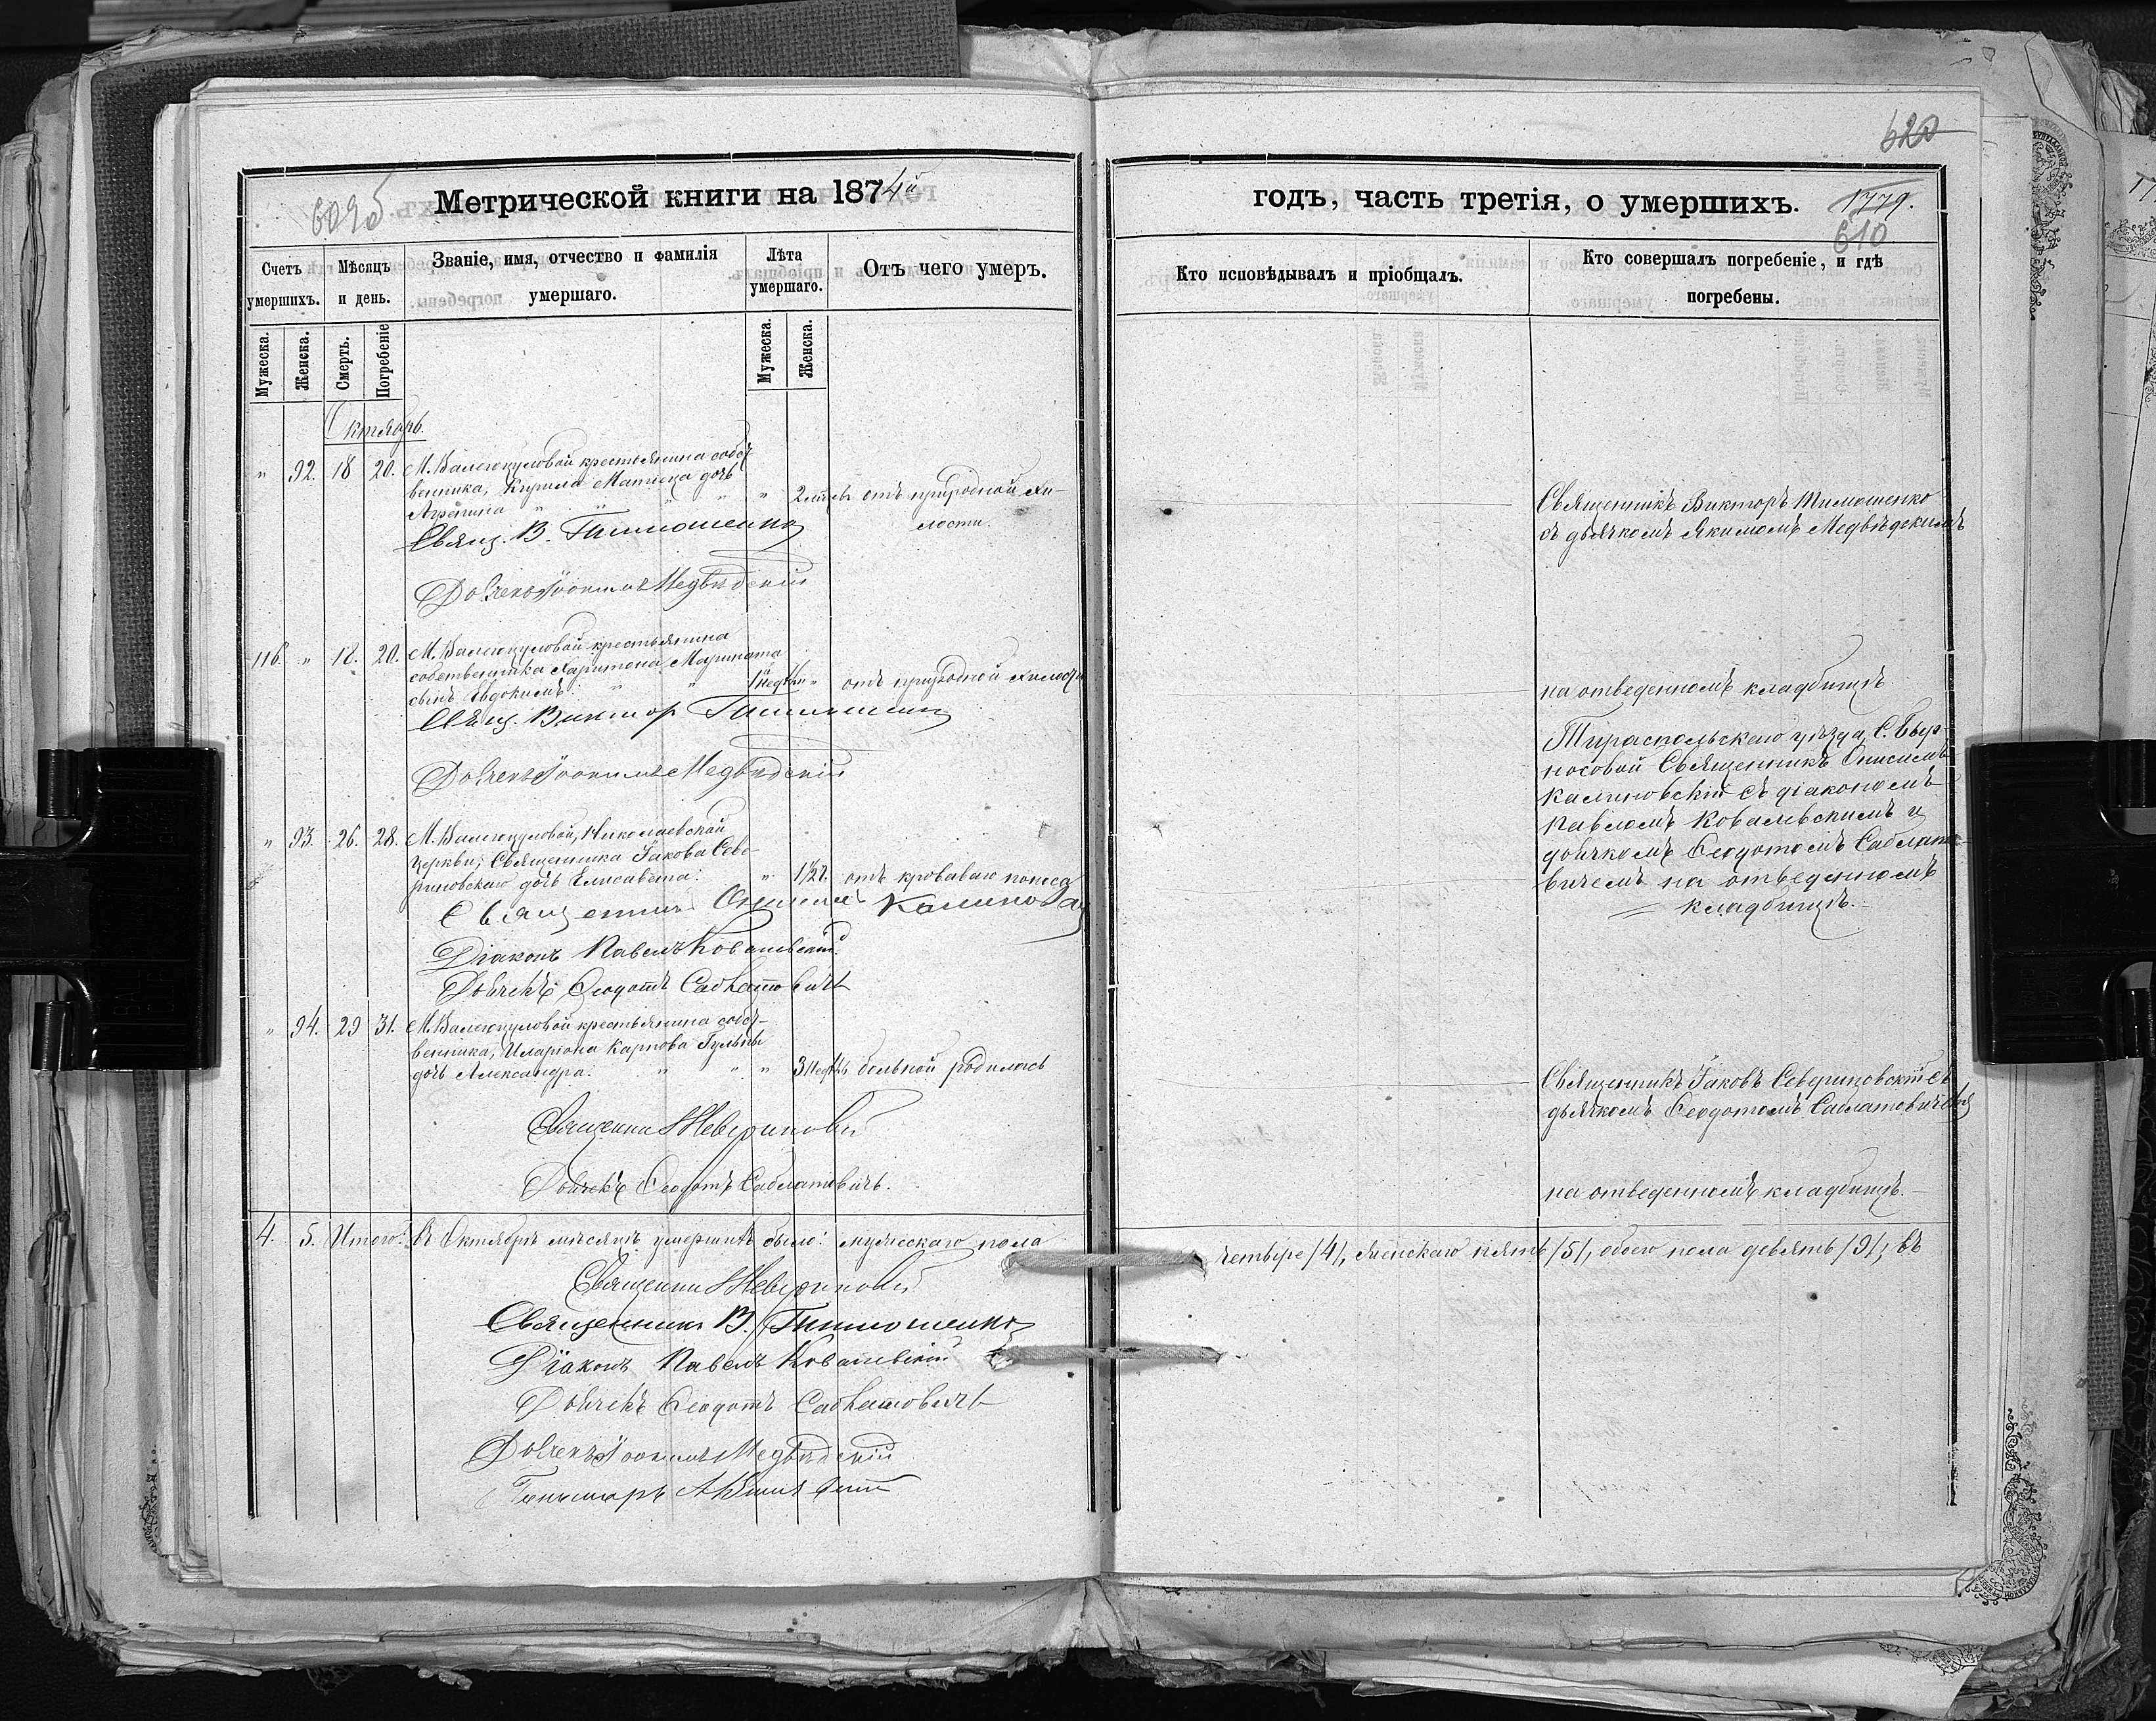 620
609б
Метрической книги на 1874й
годъ, часть третія, о умершихъ.
1779.
610
Счетъ умершихъ.
Мѣсяцъ и день.
Званіе, имя, отчество и фамилія умершаго.
Лѣта умершаго.
Отъ чего умеръ.
Кто исповѣдывалъ и пріобщалъ.
Кто совершалъ погребеніе, и гдѣ погребены.
Мужеска.
Женска.
Смерть.
Погребеніе
Мужеска.
Женска.
Октябрь.
" 92. 18 20. М. Валегоцуловой крестьянина собст
венника, Кирила дочь
" 2 отъ природной хи-
лости.
Свящ. В. Тимошенко
Дьячекъ Іоакимъ Медвѣдскій
Священникъ Викторъ Тимошенко
съ дьячкомъ Якимомъ Медвѣдскимъ
116. " 18. 20. М. Валегоцуловой крестьянина
собственника Харитона
сынъ Евдокимъ. "
1 недѣли " отъ природной хилости
Свящ. Виктор Тимошенко
Дьячекъ Іоакимъ Медвѣдскій
на отведенномъ кладбищѣ
" 93. 26. 28. М. Валегоцуловой, Николаевской
церкви, Священника Іакова Севе-
риновскаго дочь Елисавета.
" 1 1/2 г. отъ кроваваго поноса
Священникъ Онисимъ
Діаконъ Павелъ Ковалевскій.
Дьячекъ Ѳеодотъ Саблатовичъ
Тираспольскаго уѣзда, С.
носовой Священникъ Онисимъ
Калиновскій съ діакономъ
Павломъ Ковалевскимъ и
дьячкомъ Ѳеодотомъ Саблато-
вичемъ на отведенномъ
кладбищѣ.
" 94. 29 31. М. Валегоцуловой крестьянина собст-
венника, Иларіона Карпова
дочь Александра. " " "
3 недѣль больной родилась
Священникъ Севериновскій
Дьячекъ Ѳеодотъ Саблатовичъ.
Священникъ Іаковъ Севериновскій съ
дьячкомъ Ѳеодотомъ Саблатовичемъ
на отведенномъ кладбищѣ.
4. 5. Итого: въ Октябрѣ мѣсяцѣ умершихъ было: мужескаго пола
четыре /4/, женскаго пять /5/, обоего пола девять /9/, въ
Священникъ Севериновскій
Священникъ В. Тимошенко
Діаконъ Павелъ Ковалевскій
Дьячекъ Ѳеодотъ Саблатовичъ
Дьячекъ Іоакимъ Медвѣдскій
Пономарь